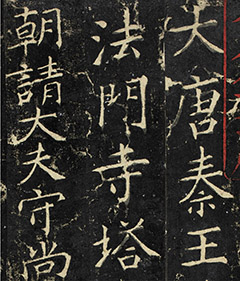 大唐秦王
法門寺塔
朝請大夫守尚